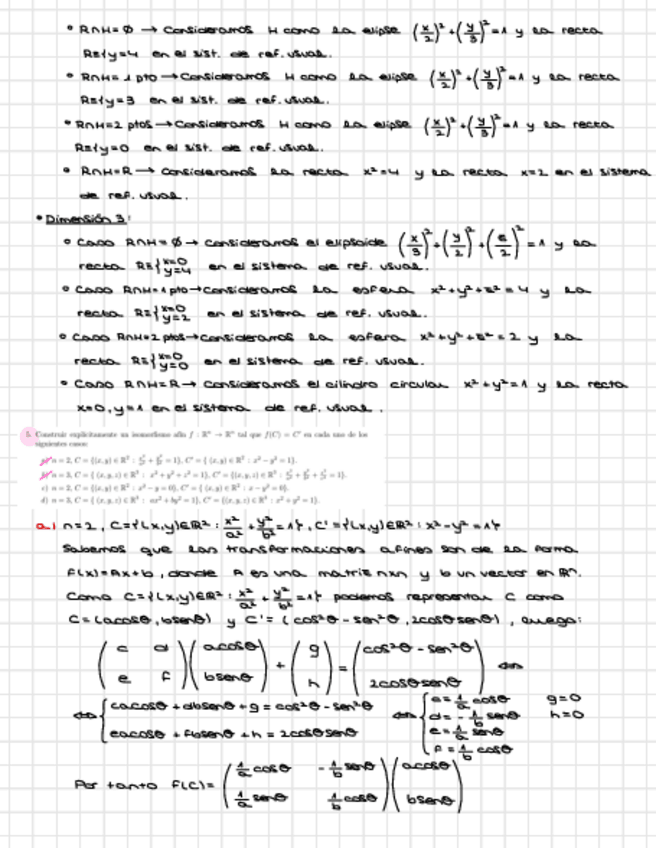 • R∩H=∅ → Consideramos H como la elipse (x/2)²+(y/3)²=1 y la recta
R≡{y=4 en el sist. de ref. usual.
• R∩H=1 pto → Consideramos H como la elipse (x/2)²+(y/3)²=1 y la recta
R≡{y=3 en el sist. de ref. usual.
• R∩H=2 ptos → Consideramos H como la elipse (x/2)²+(y/3)²=1 y la recta
R≡{y=0 en el sist. de ref. usual.
• R∩H=R → Consideramos la recta x²=4 y la recta x=2 en el sistema
de ref. usual.
• Dimensión 3:
• Caso R∩H=∅ → Consideramos el elipsoide (x/3)²+(y/2)²+(z/2)²=1 y la
recta R≡{x=0 y=4 en el sistema de ref. usual.
• Caso R∩H=1 pto → Consideramos la esfera x²+y²+z²=4 y la
recta R≡{x=0 y=2 en el sistema de ref. usual.
• Caso R∩H=2 ptos → Consideramos la esfera x²+y²+z²=2 y la
recta R≡{x=0 y=0 en el sistema de ref. usual.
• Caso R∩H=R → Consideramos el cilindro circular x²+y²=1 y la recta
x=0, y=1 en el sistema de ref. usual.
5. Construir explícitamente un isomorfismo afín f : ℝⁿ → ℝⁿ tal que f(C) = C' en cada uno de los
siguientes casos:
a) n = 2, C = {(x,y) ∈ ℝ² : x²/a² + y²/b² = 1}, C' = {(x,y) ∈ ℝ² : x² − y² = 1}.
b) n = 3, C = {(x,y,z) ∈ ℝ³ : x² + y² + z² = 1}, C' = {(x,y,z) ∈ ℝ³ : x²/a² + y²/b² + z²/c² = 1}.
c) n = 2, C = {(x,y) ∈ ℝ² : x² − y = 0}, C' = {(x,y) ∈ ℝ² : x − y² = 0}.
d) n = 3, C = {(x,y,z) ∈ ℝ³ : ax² + by² = 1}, C' = {(x,y,z) ∈ ℝ³ : x² + y² = 1}.
a) n=2, C={(x,y)∈ℝ² : x²/a² + y²/b² = 1}, C'={(x,y)∈ℝ² : x²-y²=1}
Sabemos que las transformaciones afines son de la forma
f(x)=Ax+b, donde A es una matriz nxn y b un vector en ℝⁿ.
Como C={(x,y)∈ℝ² : x²/a² + y²/b² = 1} podemos representar C como
C=(acosθ, bsenθ) y C'=(cos²θ - sen²θ, 2cosθsenθ), luego:
(c d; e f)(acosθ; bsenθ) + (g; h) = (cos²θ - sen²θ; 2cosθsenθ) ⟺
⟺ {cacosθ + dbsenθ + g = cos²θ - sen²θ; eacosθ + fbsenθ + h = 2cosθsenθ ⟺ {c = 1/a cosθ; d = -1/b senθ; e = 1/a senθ; f = 1/b cosθ g=0 h=0
Por tanto f(C) = (1/a cosθ -1/b senθ; 1/a senθ 1/b cosθ)(acosθ; bsenθ)